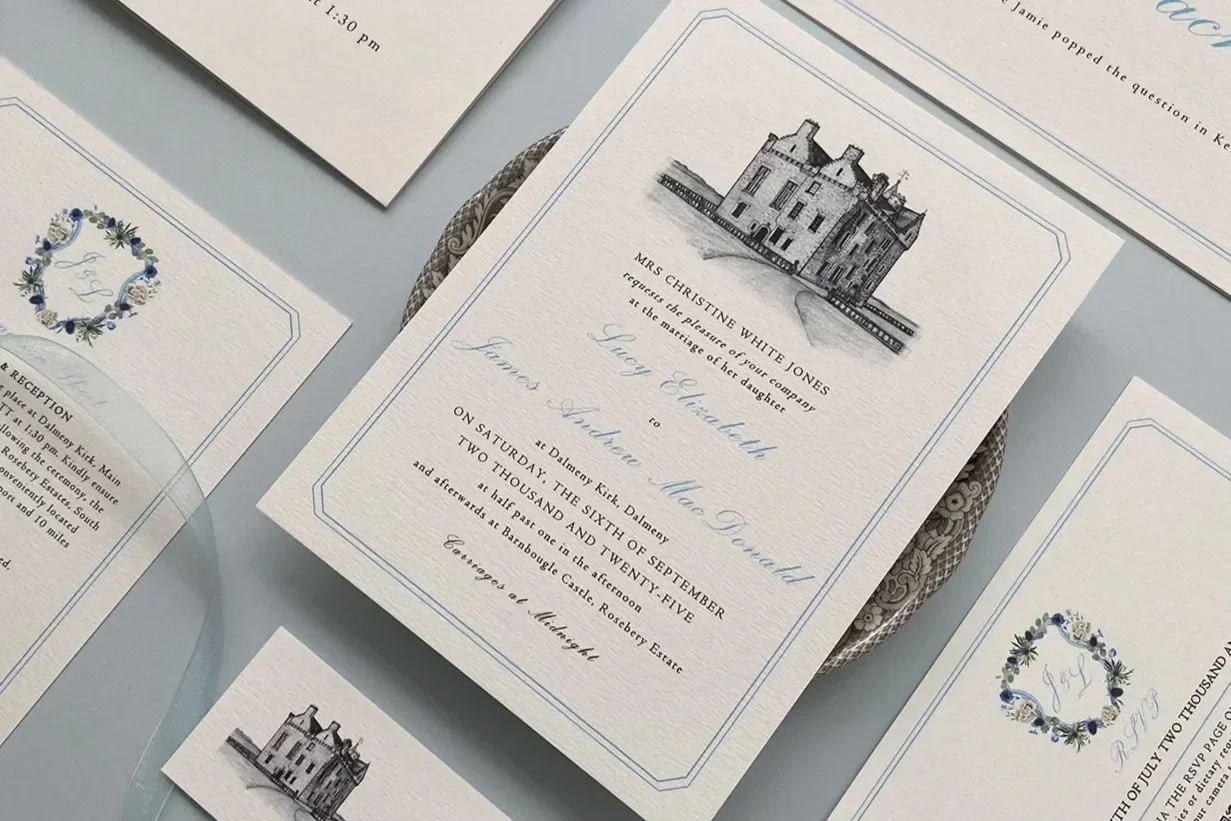 at 1:30 pm
Jamie popped the question in
J & L
& RECEPTION
place at Dalmeny Kirk, Main
at 1:30 pm. Kindly ensure
following the ceremony, the
Rosebery Estates, South
conveniently located
and 10 miles
MRS CHRISTINE WHITE JONES
requests the pleasure of your company
at the marriage of her daughter
Lucy Elizabeth
to
James Andrew Mac Donald
at Dalmeny Kirk, Dalmeny
ON SATURDAY, THE SIXTH OF SEPTEMBER
TWO THOUSAND AND TWENTY-FIVE
at half past one in the afternoon
and afterwards at Barnbougle Castle, Rosebery Estate
Carriages at Midnight
J & L
RSVP
OF JULY TWO THOUSAND
THE RSVP PAGE
or dietary
your camera